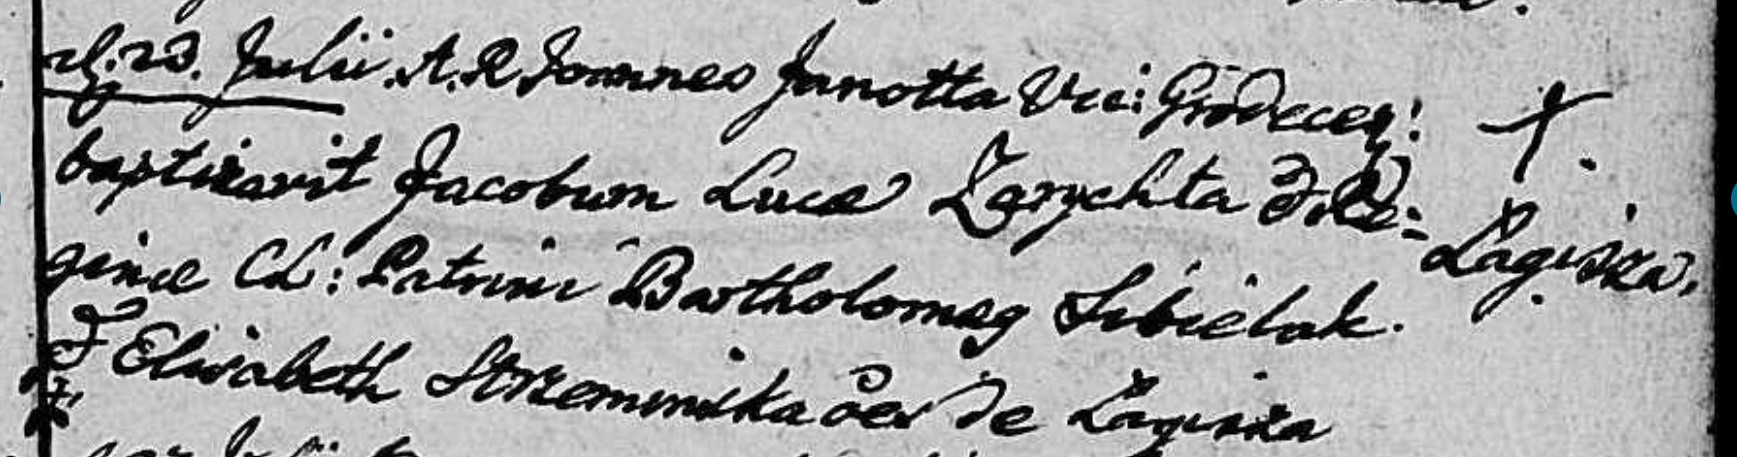 23. Julii. A. R. Joannes Janotta Vic: Grodecey:
baptizavit Jacobum Lucæ Zarychta & Re-
ginæ CL: Patrini Bartholomæy Sibielak.
& Elisabeth Strzeminska oēs de Łagisza
Łagisza.